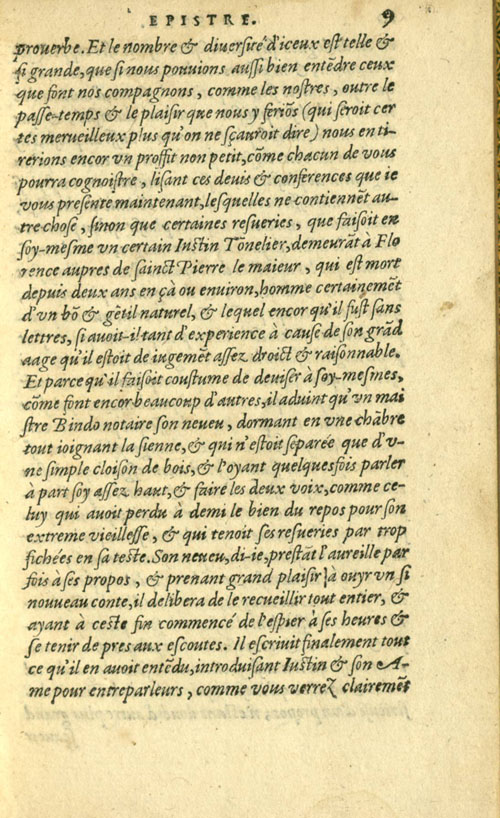 EPISTRE. 9
prouerbe. Et le nombre & diuersité d'iceux est telle &
si grande, que si nous pouuions aussi bien entẽdre ceux
que font nos compagnons, comme les nostres, outre le
passe-temps & le plaisir que nous y feriõs (qui seroit cer
tes merueilleux plus qu'on ne sçauroit dire) nous en ti-
rerions encor vn proffit non petit, cõme chacun de vous
pourra cognoistre, lisant ces deuis & conferences que ie
vous presente maintenant, lesquelles ne contiennẽt au-
tre chose, sinon que certaines resueries, que faisoit en
soy-mesme vn certain Iustin Tõnelier, demeurãt à Flo
rence aupres de sainct Pierre le maieur, qui est mort
depuis deux ans en çà ou enuiron, homme certainemẽt
d'vn bõ & gẽtil naturel, & lequel encor qu'il fust sans
lettres, si auoit-il tant d'experience à cause de son grãd
aage qu'il estoit de iugemẽt assez droict & raisonnable.
Et parce qu'il faisoit coustume de deuiser à soy-mesmes,
cõme font encor beaucoup d'autres, il aduint qu'vn mai
stre Bindo notaire son neueu, dormant en vne chãbre
tout ioignant la sienne, & qui n'estoit separée que d'v-
ne simple cloison de bois, & l'oyant quelquesfois parler
à part soy assez haut, & faire les deux voix, comme ce-
luy qui auoit perdu à demi le bien du repos pour son
extreme vieillesse, & qui tenoit ses resueries par trop
fichées en sa teste. Son neueu, di-ie, prestãt l'aureille par
fois à ses propos, & prenant grand plaisir à ouyr vn si
nouueau conte, il delibera de le recueillir tout entier, &
ayant à ceste fin commencé de l'espier à ses heures &
se tenir de pres aux escoutes. Il escriuit finalement tout
ce qu'il en auoit entẽdu, introduisant Iustin & son A-
me pour entreparleurs, comme vous verrez clairemẽt